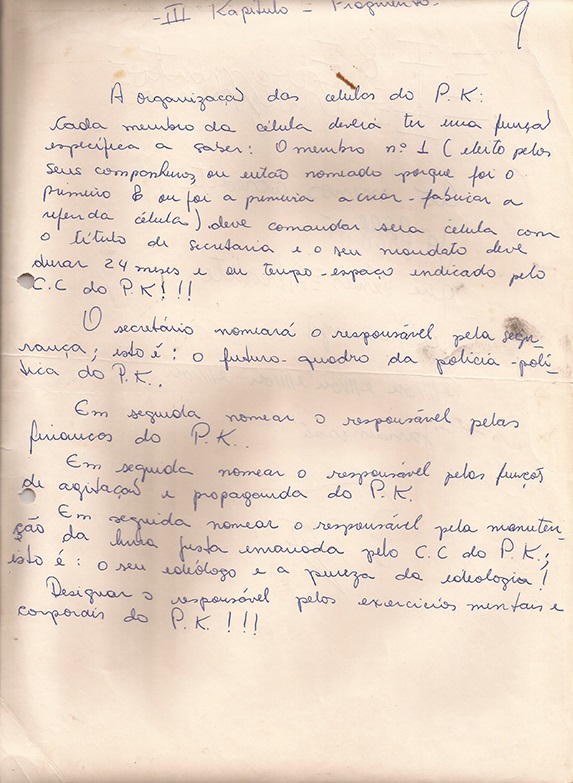 - III Kapitulo = Fragmento -
9
A organizaçaõ das células do P.K:
Cada membro da célula deverá ter uma funçaõ
específica a saber: O membro nº 1 (eleito pelos
seus companheiros, ou então nomeado porque foi o
primeiro E ou foi a primeira a criar-fabricar a
referida célula) deve comandar sera célula com
o título de secretaria e o seu mandato deve
durar 24 meses e ou tempo-espaço indicado pelo
C.C do P.K!!!
O secretário nomeará o responsável pela segu-
rança; isto é: o futuro-quadro da policia-polí-
tica do P.K..
Em seguida nomear o responsável pelas
finanças do P.K..
Em seguida nomear o responsável pelas funções
de agitaçaõ e propaganda do P.K.
Em seguida nomear o responsável pela manuten-
ção da linha justa emanada pelo C.C do P.K.;
isto é: o seu ideólogo e a pureza da ideologia!
Designar o responsável pelos exercicios mentais e
corporais do P.K.!!!